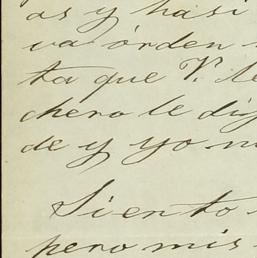 as y hasi
va órden
ta que V. le
chero le di
de y yo n
Siento
pero mis